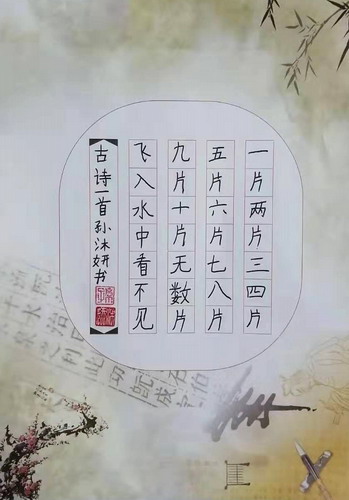 一片两片三四片
五片六片七八片
九片十片无数片
飞入水中看不见
古诗一首孙沐妍书